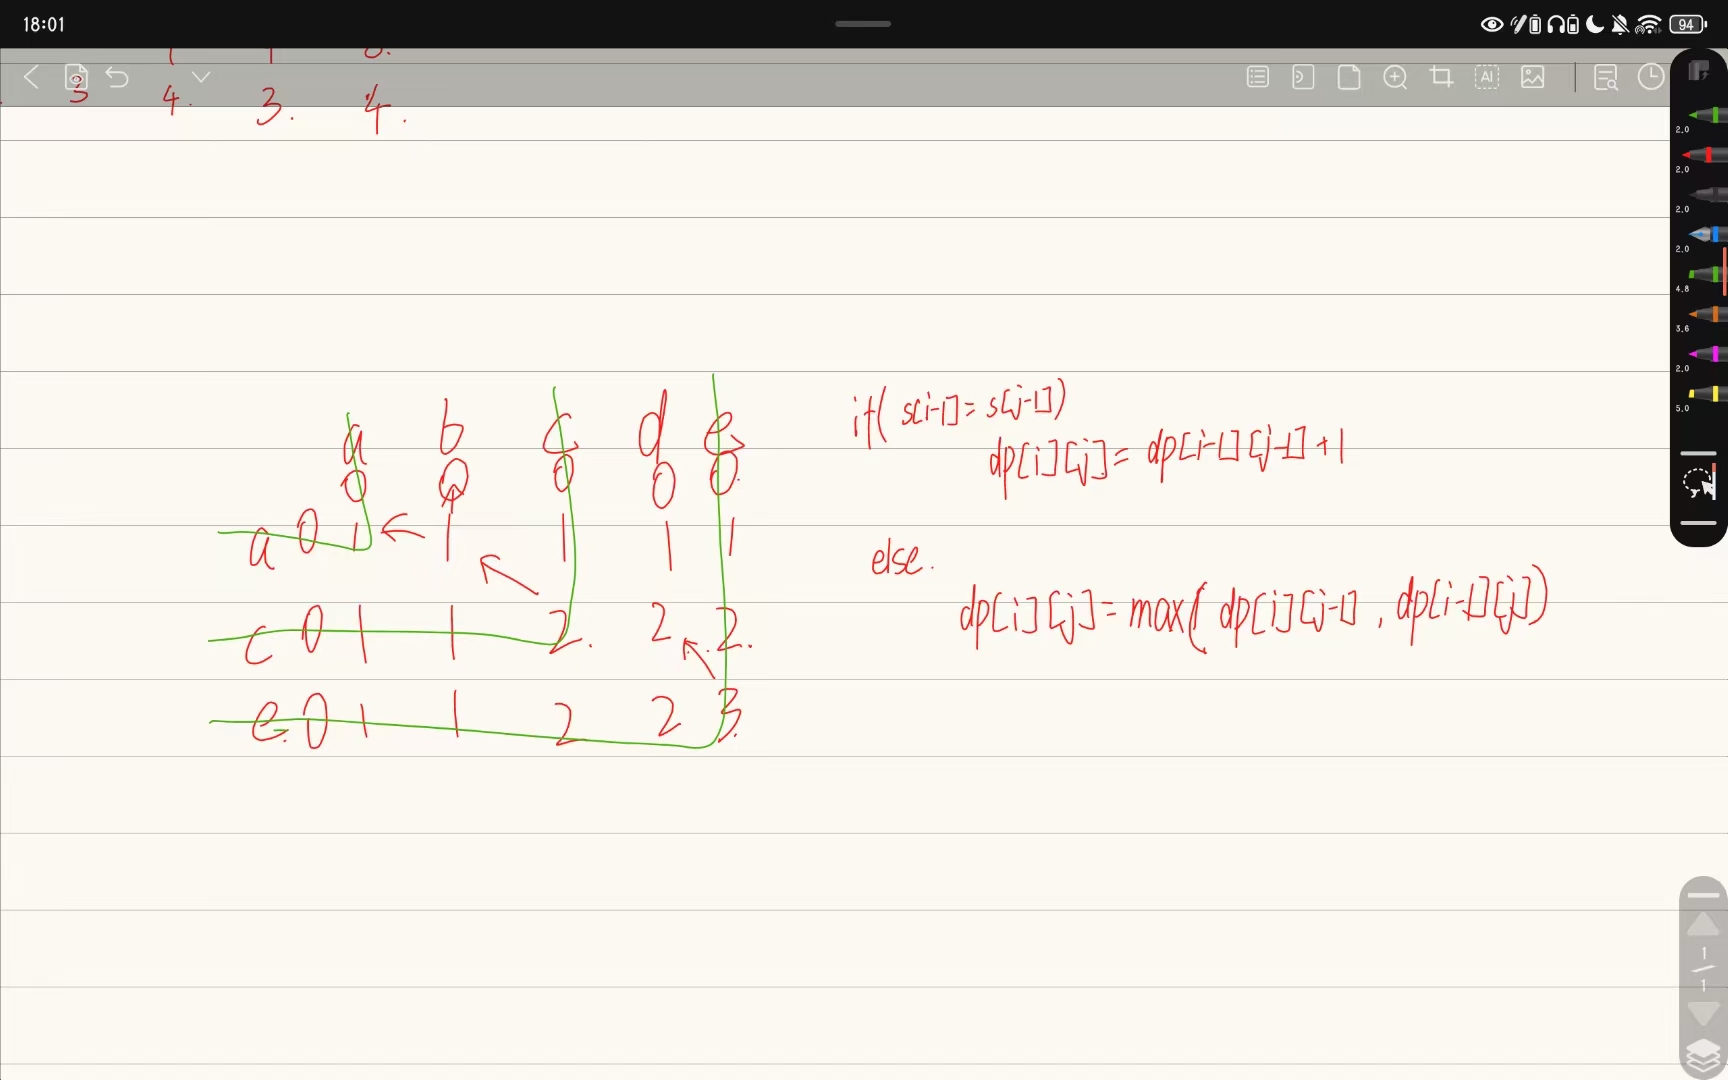 18:01
94
3 4. 3. 4.
a b c d e
0 0 0 0 0.
a 0 1 1 1 1 1
c 0 1 1 2. 2 2.
e. 0 1 1 2 2 3.
if( s[i-1]= s[j-1])
dp[i][j]= dp[i-1][j-1]+1
else.
dp[i][j]= max( dp[i][j-1] , dp[i-1][j])
AI
2.0
2.0
2.0
2.0
4.8
3.6
2.0
5.0
1
1